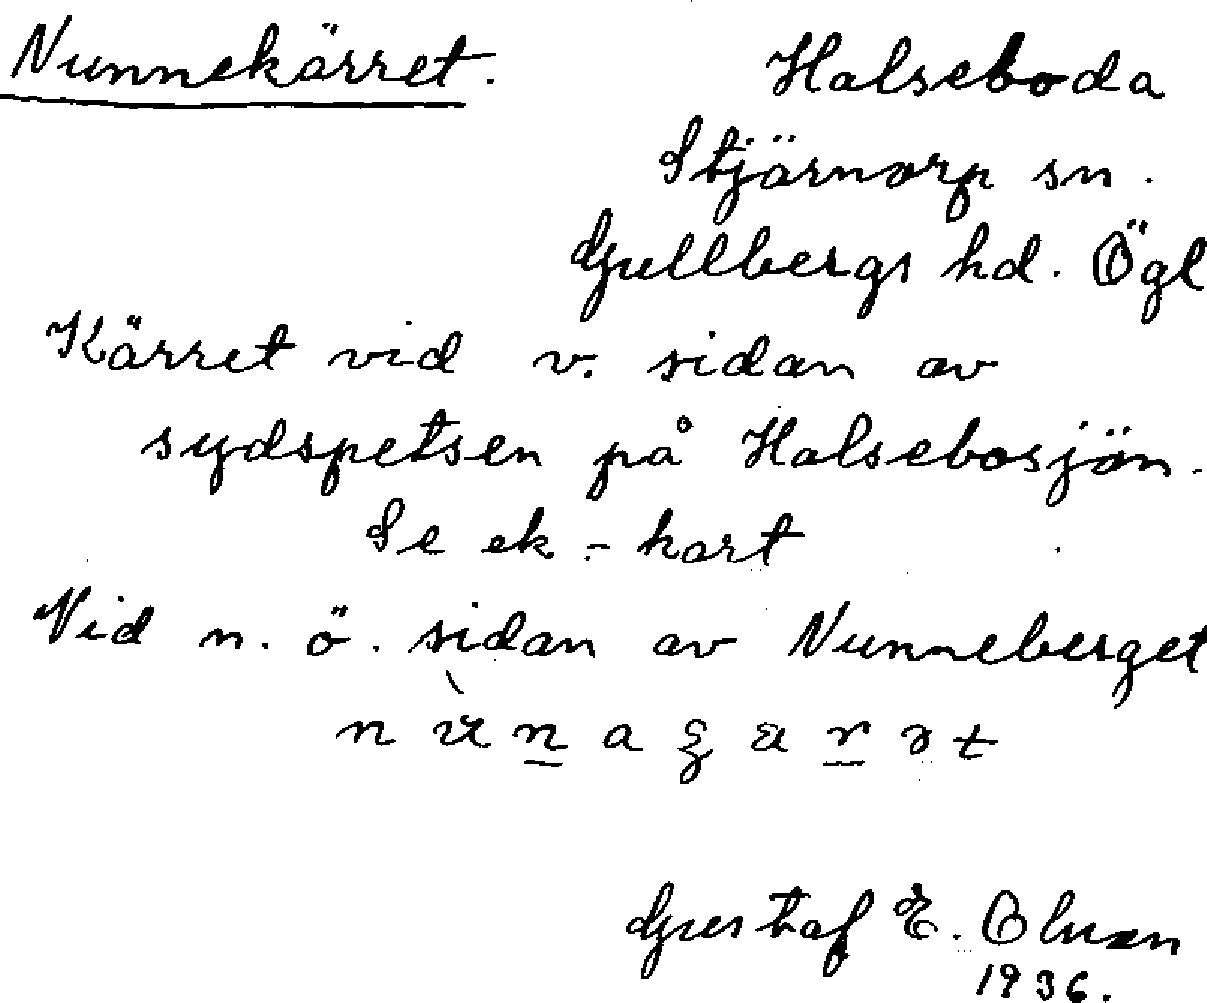 Nunnekärret. Halseboda
Stjärnorp sn.
Gullbergs hd. Ögl
Kärret vid v. sidan av
sydspetsen på Halsebosjön.
Se ek-kart
Vid n. ö. sidan av Nunneberget
Gustaf E.
1936.